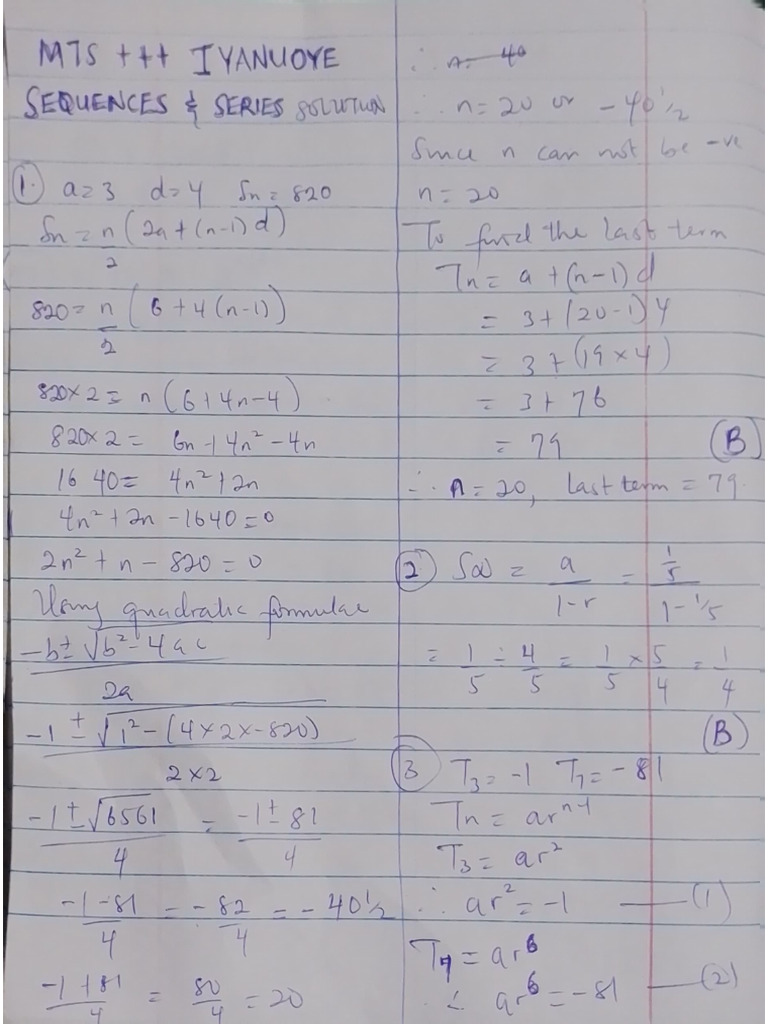 MTS +++ IYANUOYE
SEQUENCES & SERIES SOLUTION
① a=3 d=4 Sn=820
Sn = n/2 (2a+(n-1)d)
820= n/2 (6+4(n-1))
820×2= n(6+4n-4)
820×2= 6n+4n²-4n
1640= 4n²+2n
4n²+2n-1640=0
2n²+n-820=0
Using quadratic formulae
-b±√b²-4ac
2a
-1±√1²-(4×2×-820)
2×2
-1±√6561/4 = -1±81/4
-1-81/4 = -82/4 = -40½
-1+81/4 = 80/4 = 20
∴ n= 40
∴ n=20 or -40½
Since n can not be -ve
n=20
To find the last term
Tn= a+(n-1)d
= 3+(20-1)4
= 3+(19×4)
= 3+76
= 79 (B)
∴ n=20, last term = 79.
② S∞ = a/1-r = 1/5/1-1/5
= 1/5 ÷ 4/5 = 1/5 × 5/4 = 1/4
(B)
③ T₃=-1 T₇=-81
Tn=arⁿ⁻¹
T₃=ar²
∴ ar²=-1 —(1)
T₇=ar⁶
∴ ar⁶=-81 —(2)